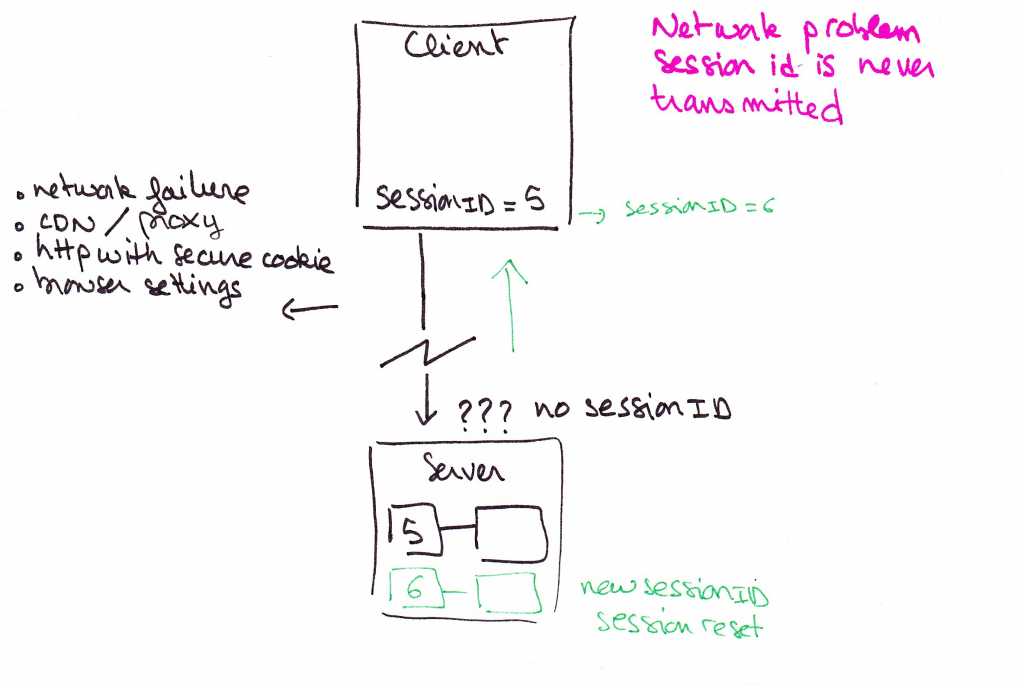 Client
Network problem
session id is never
transmitted
sessionID = 5
→ sessionID = 6
• network failure
• CDN / proxy
• http with secure cookie
• browser settings
←
??? no sessionID
Server
5
6
new sessionID
session reset